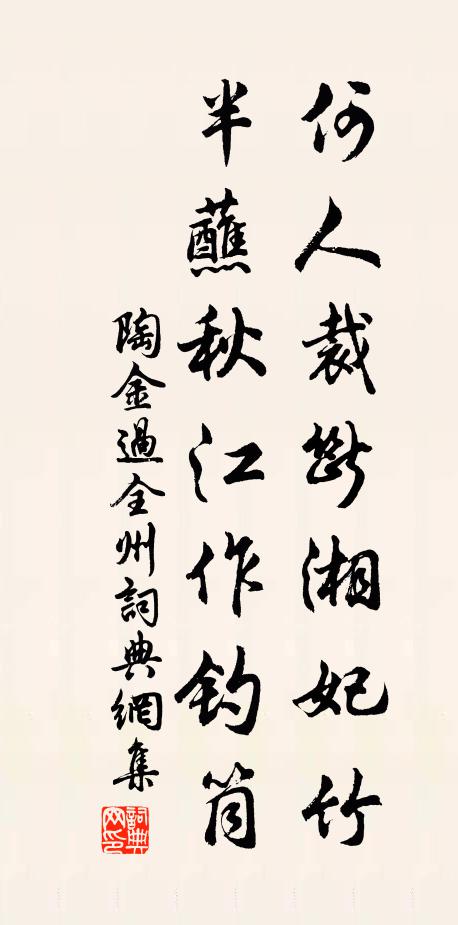 何人裁斷湘妃竹
半蘸秋江作釣筒
陶金過全州詞典網集
詞典网印